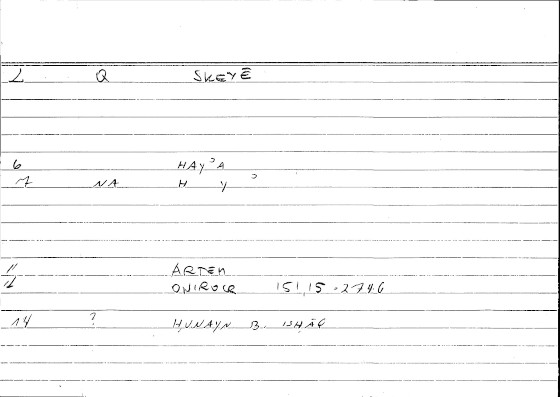 2 Q SKEYĒ
6 HAYʾA
7 NA H Y ʾ
11 ARTEM
12 ONIROCR 151,15 = 274.6
14 ? HUNAYN B. ISHĀQ